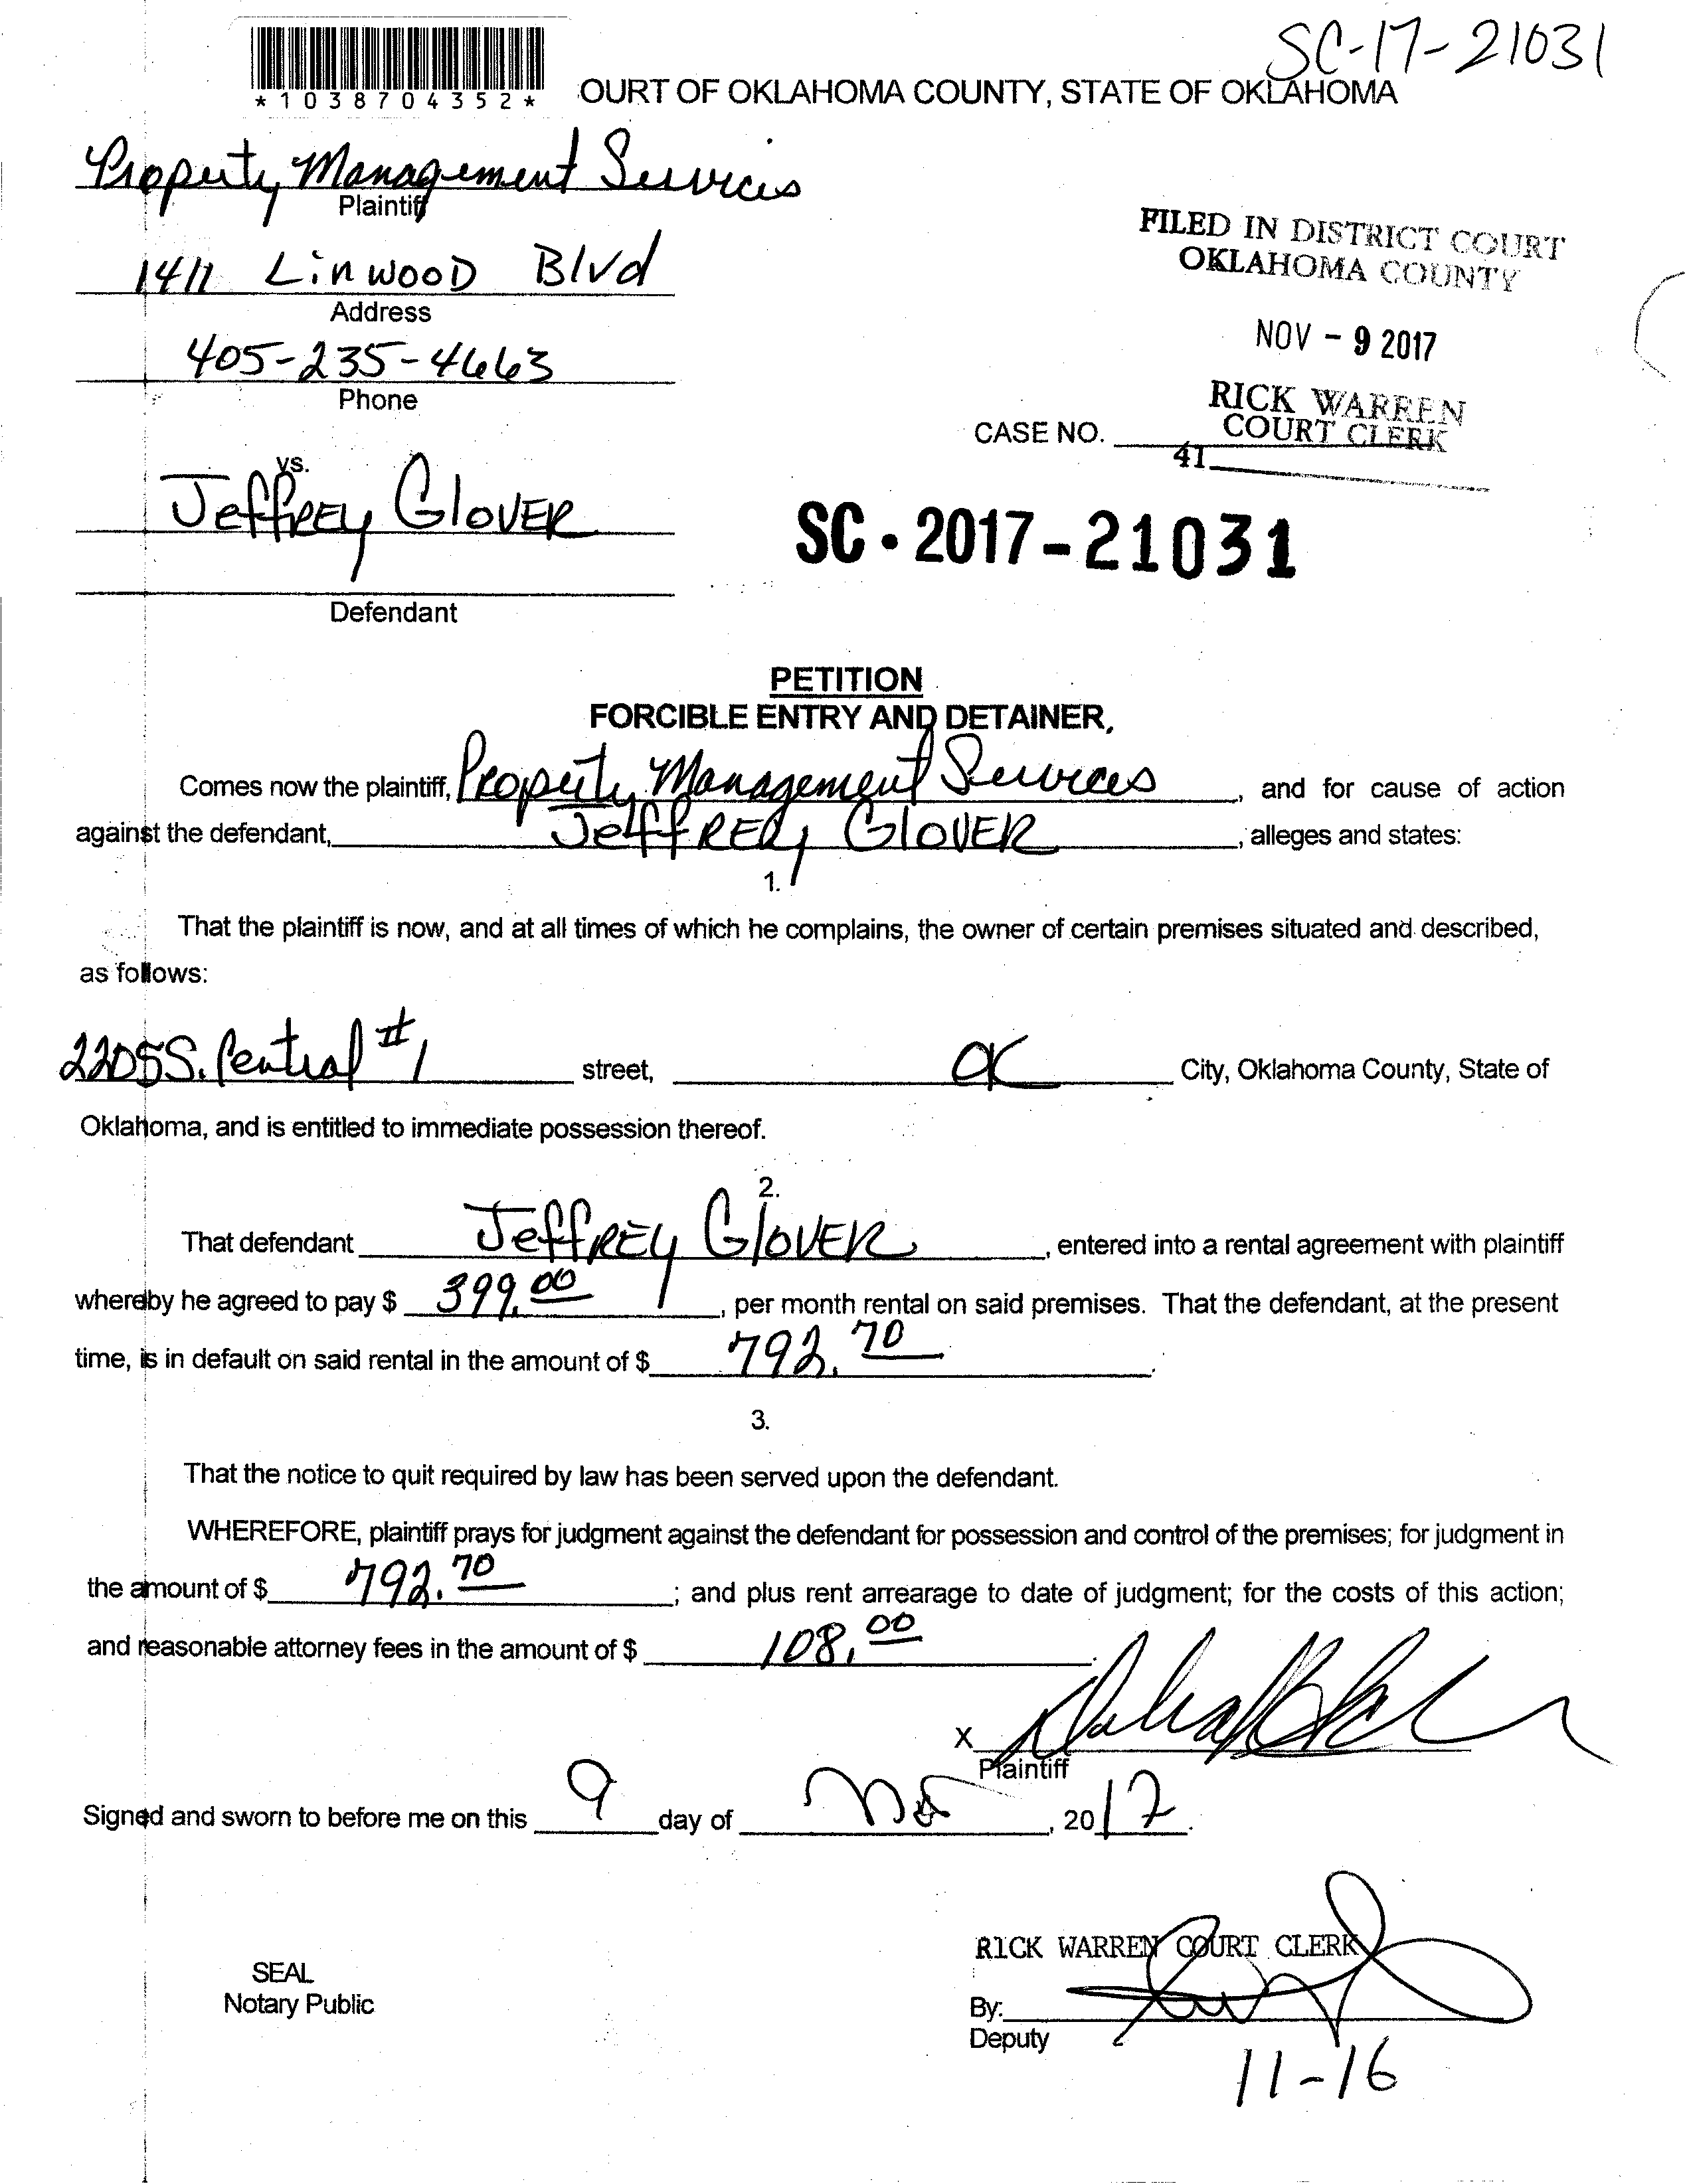 SC-17-21031
*1038704352*
OURT OF OKLAHOMA COUNTY, STATE OF OKLAHOMA
Property Management Services
Plaintiff
1411 LinwooD Blvd
Address
405-235-4663
Phone
FILED IN DISTRICT COURT
OKLAHOMA COUNTY
NOV - 9 2017
RICK WARREN
COURT CLERK
CASE NO.
41
vs.
JeffREy GloVER
Defendant
SC - 2017-21031
PETITION
FORCIBLE ENTRY AND DETAINER,
Comes now the plaintiff, Property Management Services, and for cause of action
against the defendant, JeffREy GlOVER, alleges and states:
1.
That the plaintiff is now, and at all times of which he complains, the owner of certain premises situated and described,
as follows:
2205 S. Central #1 street, OK City, Oklahoma County, State of
Oklahoma, and is entitled to immediate possession thereof.
2.
That defendant JeffREy GloVER, entered into a rental agreement with plaintiff
whereby he agreed to pay $ 399.00, per month rental on said premises. That the defendant, at the present
time, is in default on said rental in the amount of $ 792.70.
3.
That the notice to quit required by law has been served upon the defendant.
WHEREFORE, plaintiff prays for judgment against the defendant for possession and control of the premises; for judgment in
the amount of $ 792.70; and plus rent arrearage to date of judgment; for the costs of this action;
and reasonable attorney fees in the amount of $ 108.00.
X
Plaintiff
Signed and sworn to before me on this 9 day of Nov, 2017.
RICK WARREN COURT CLERK
SEAL
Notary Public
By:
Deputy
11-16